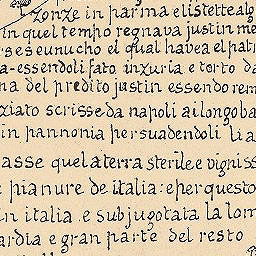 zonze in parma e li stette alg
in quel tempo regnava justin me
rses eunucho el qual havea el patr
a-essendoli fato inzuria e torto da
na del predito justin essendo rem
ziato scrisse da napoli ai longoba
in pannonia persuadendoli li a
asse quela terra sterile e vigniss
pianure de italia: e per questo
in italia e subjugotata la lom
ardia e gran parte del resto